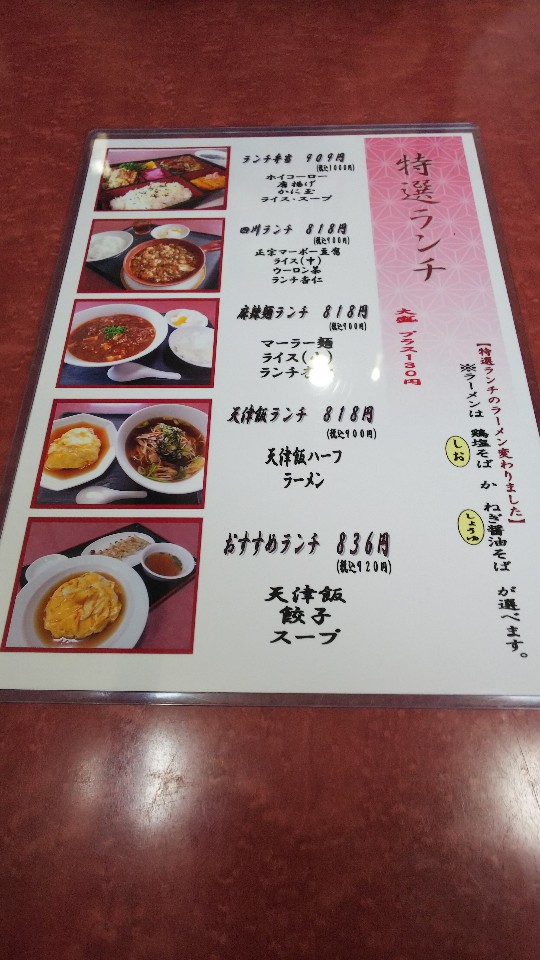 特選ランチ
大盛 プラス130円
【特選ランチのラーメン変わりました】
※ラーメンは 鶏塩そば か ねぎ醤油そば が選べます。
しお
しょうゆ
ランチ弁当 909円
(税込1000円)
ホイコーロー
唐揚げ
かに玉
ライス・スープ
四川ランチ 818円
(税込900円)
正宗マーボー豆腐
ライス(中)
ウーロン茶
ランチ杏仁
麻辣麺ランチ 818円
(税込900円)
マーラー麺
ライス(小)
ランチ杏仁
天津飯ランチ 818円
(税込900円)
天津飯ハーフ
ラーメン
おすすめランチ 836円
(税込920円)
天津飯
餃子
スープ